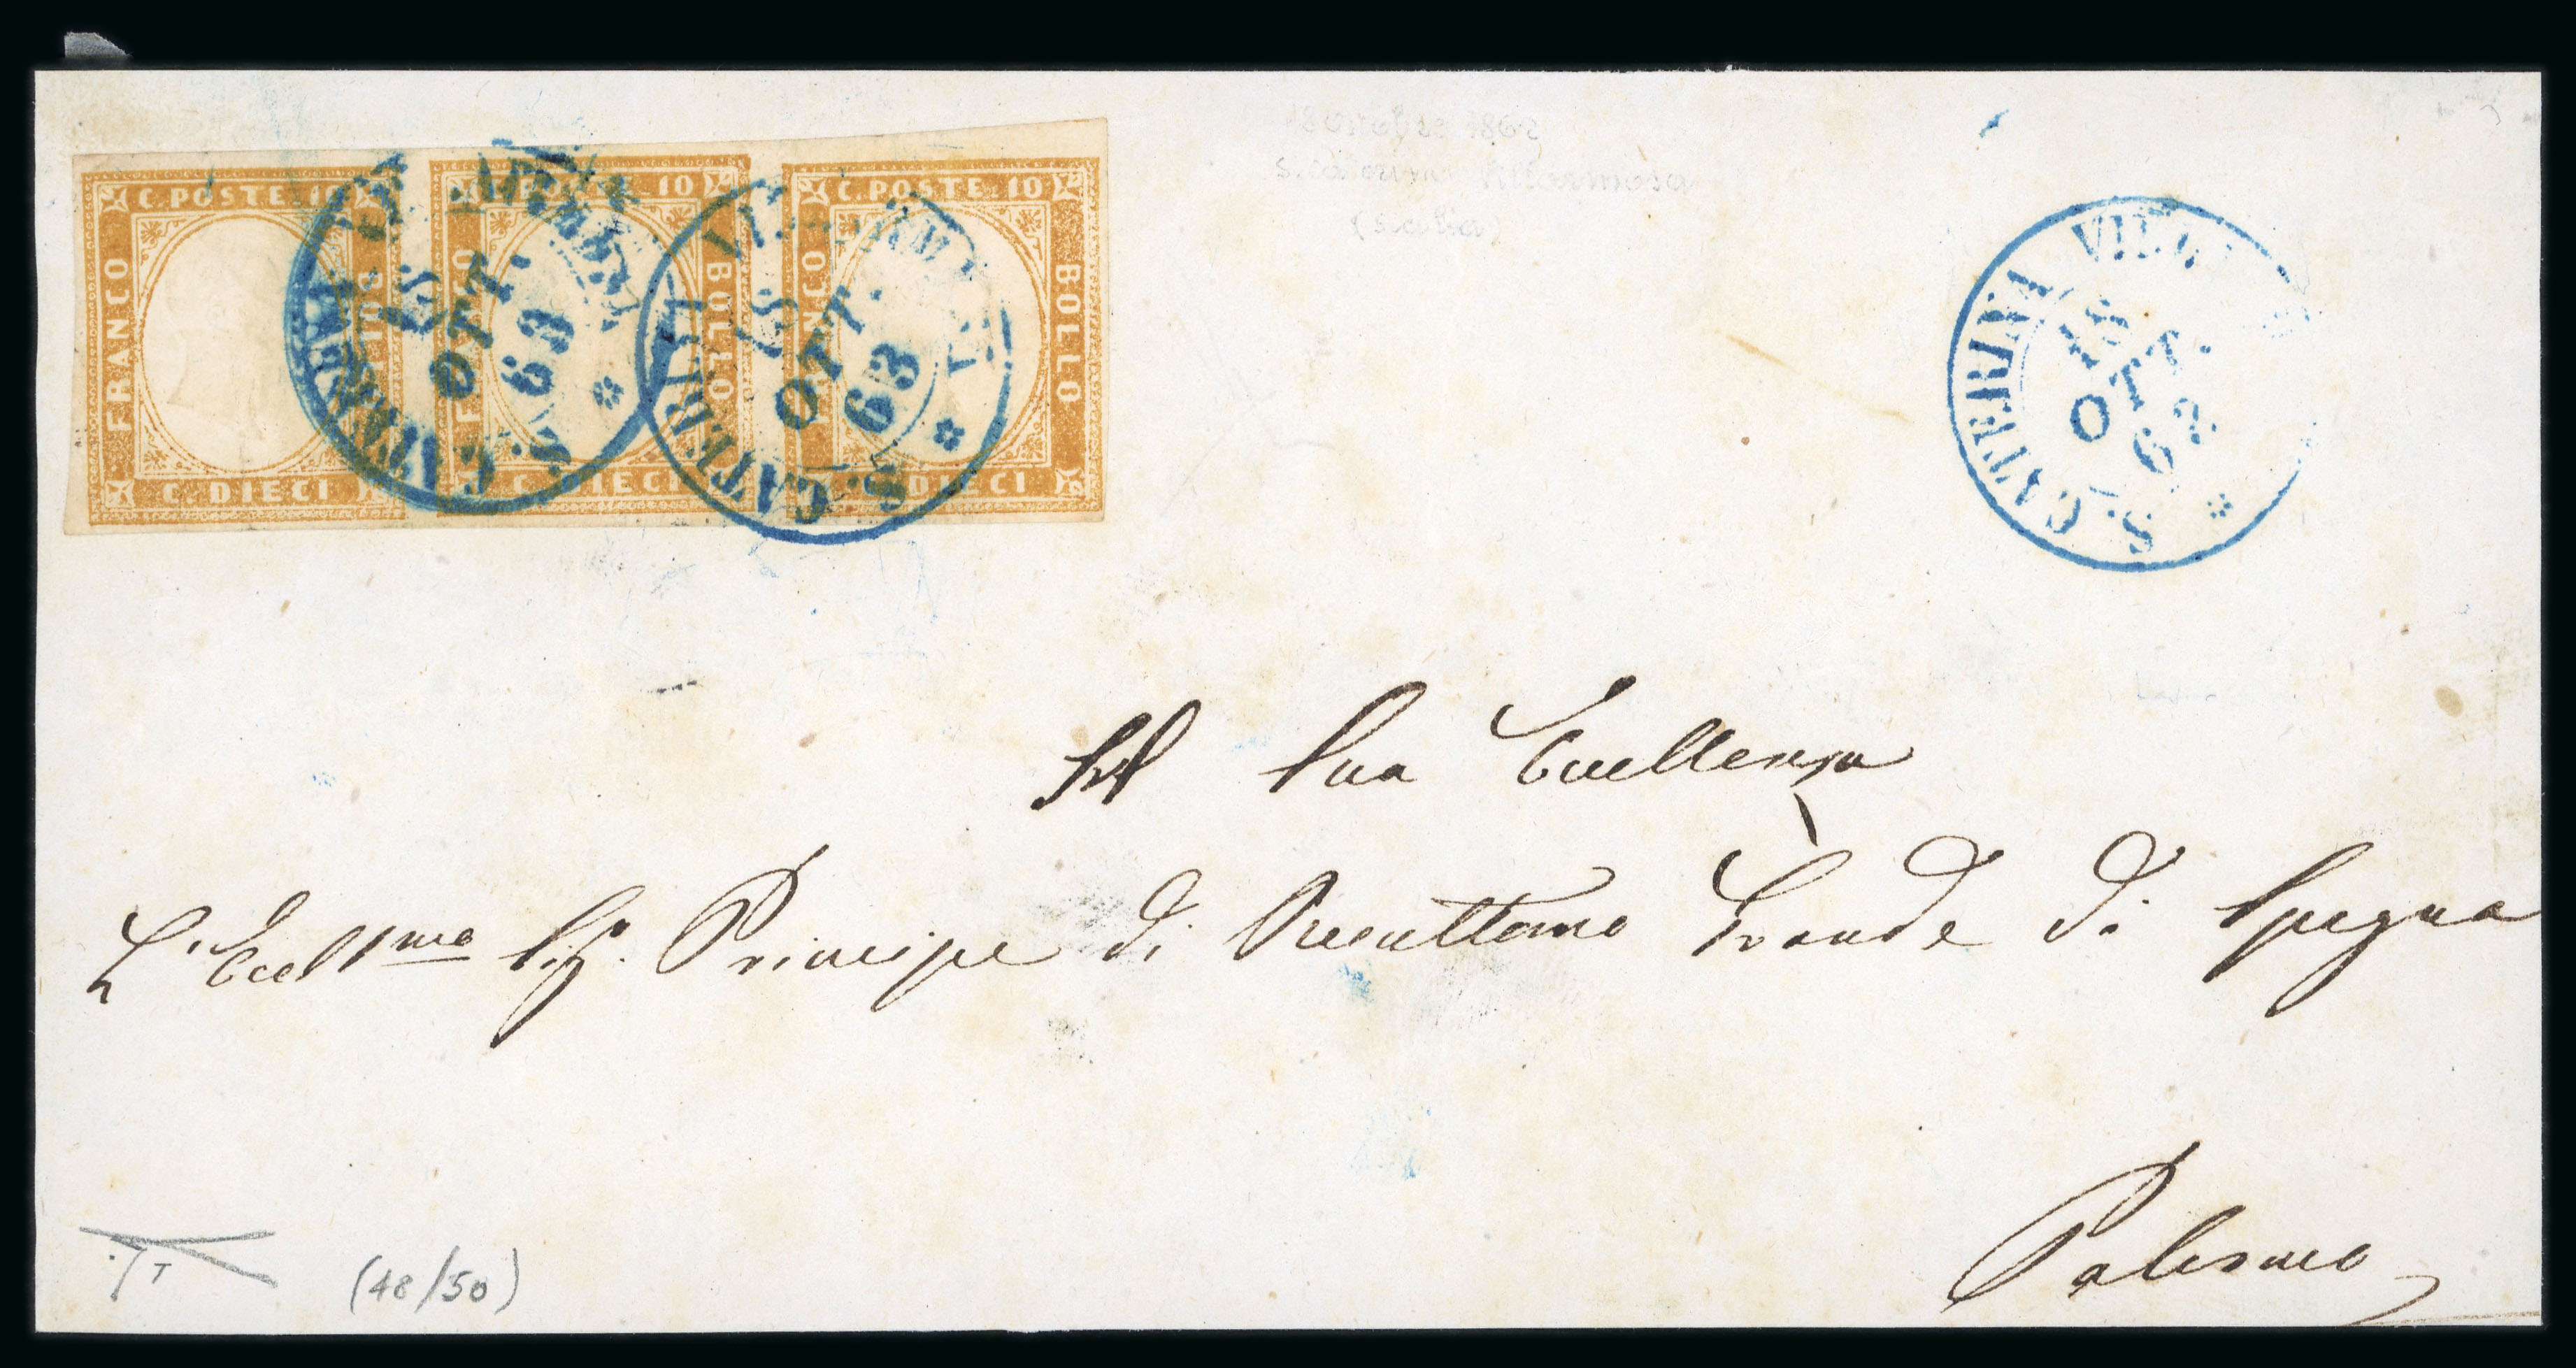 C. POSTE. 10
FRANCO
BOLLO
C. DIECI
POSTE. 10
BOLLO
C. DIECI
C. POSTE. 10
FRANCO
BOLLO
DIECI
S. CATERINA
OTT.
63
S. CATERINA
OTT.
63
S. CATERINA
18
OTT.
62
18 1862
S. Caterina Villarmosa
(Sicilia)
A Sua Eccellenza
L'Eccell.mo Sig. Principe di Resuttano Grande di Spagna
Palermo
(48/50)